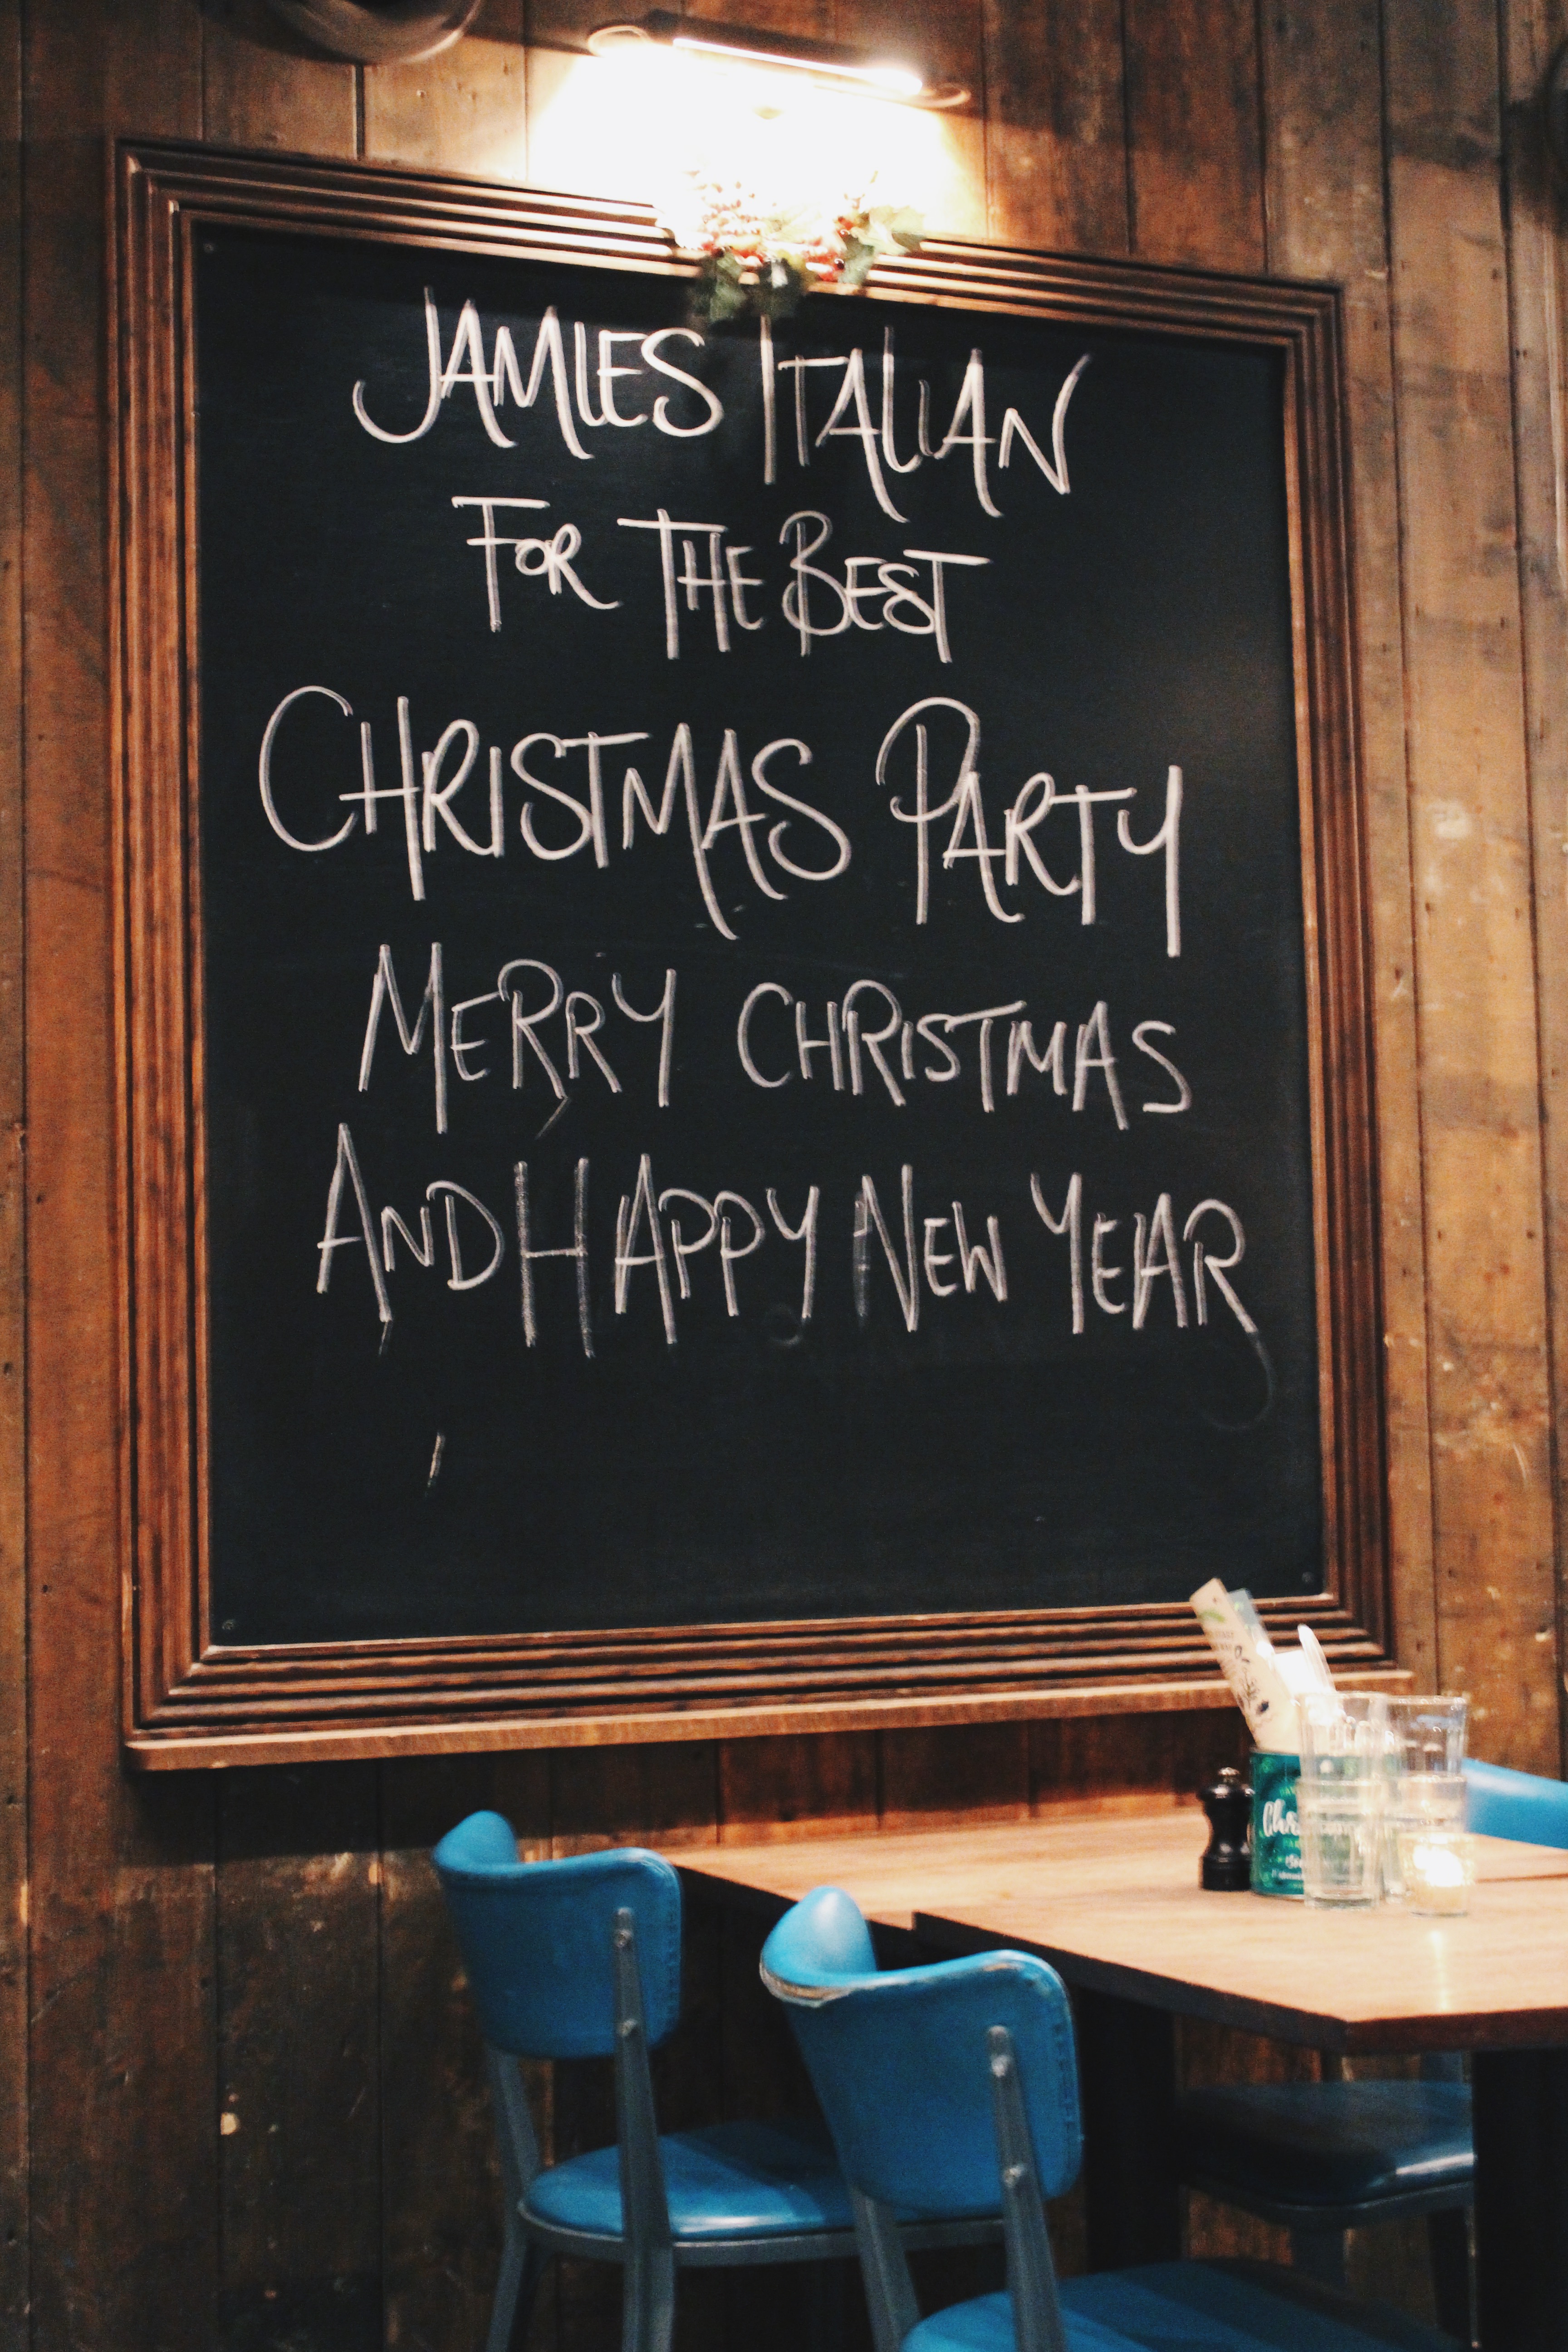 JAMIES ITALIAN
FOR THE BEST
CHRISTMAS PARTY
MERRY CHRISTMAS
AND HAPPY NEW YEAR